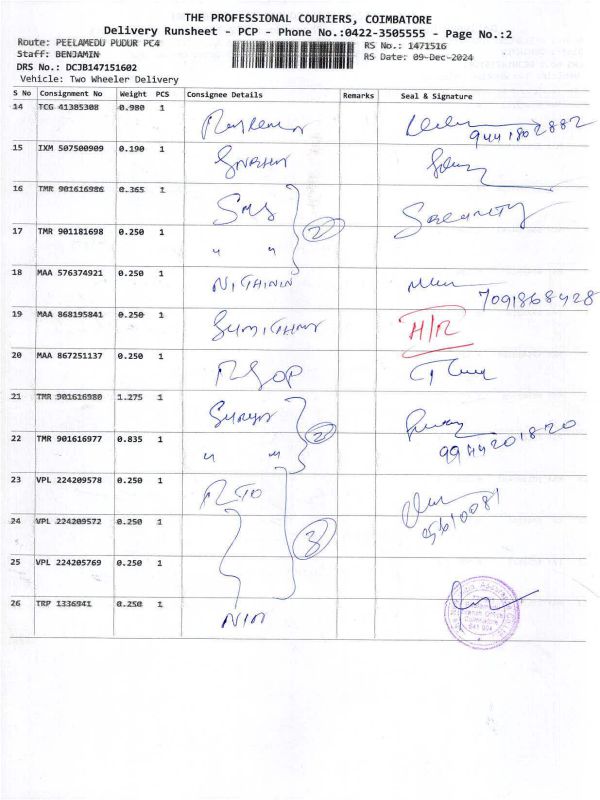 THE PROFESSIONAL COURIERS, COIMBATORE
Delivery Runsheet - PCP - Phone No.:0422-3505555 - Page No.:2
Route: PEELAMEDU PUDUR PC4
RS No.: 1471516
Staff: BENJAMIN
RS Date: 09-Dec-2024
DRS No.: DCJB147151602
Vehicle: Two Wheeler Delivery
S No Consignment No Weight PCS Consignee Details Remarks Seal & Signature
14 TCG 41385308 0.980 1
9441802882
15 IXM 507500909 0.190 1
16 TMR 901616986 0.365 1 SMS Security
2
17 TMR 901181698 0.250 1 " "
18 MAA 576374921 0.250 1 NITHININ
7091868428
19 MAA 868195841 0.250 1 H/R
20 MAA 867251137 0.250 1 RSOP
21 TMR 901616980 1.275 1 Surya
2
22 TMR 901616977 0.835 1 " " 9944201820
23 VPL 224209578 0.250 1 RTO
24 VPL 224209572 0.250 1 3 9510081
25 VPL 224205769 0.250 1
26 TRP 1336941 0.250 1